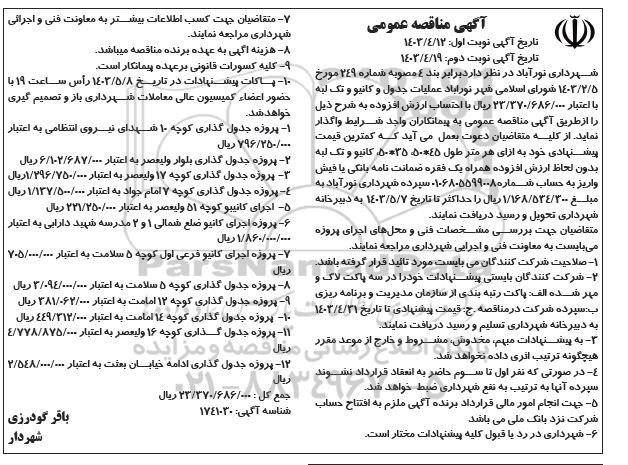 آگهی مناقصه عمومی
تاریخ آگهی نوبت اول: ۱۴۰۳/۴/۱۲
تاریخ آگهی نوبت دوم: ۱۴۰۳/۴/۱۹
شهرداری نورآباد در نظر دارد برابر بند ۴ مصوبه شماره ۲۴۹ مورخ
۱۴۰۳/۲/۵ شورای اسلامی شهر نورآباد عملیات جدول و کانیو و تک لبه
با اعتبار ۲۳/۳۷۰/۶۸۶/۰۰۰ ریال با احتساب ارزش افزوده به شرح ذیل
را ازطریق آگهی مناقصه عمومی به پیمانکاران واجد شرایط واگذار
نماید. از کلیه متقاضیان دعوت بعمل می آید که کمترین قیمت
پیشنهادی خود به ازای هر متر طول ۴۵*۵۰، ۳۵*۵۰، کانیو و تک لبه
بدون لحاظ ارزش افزوده همراه یک فقره ضمانت نامه بانکی یا فیش
واریز به حساب شماره ۰۱۰۶۸۰۵۵۹۹۰۰۸ سپرده شهرداری نورآباد به
مبلغ ۱/۱۶۸/۵۳۴/۳۰۰ ریال را حداکثر تا تاریخ ۱۴۰۳/۵/۷ به دبیرخانه
شهرداری تحویل و رسید دریافت نمایند.
متقاضیان جهت بررسی مشخصات فنی و محل‌های اجرای پروژه
می‌بایست به معاونت فنی و اجرایی شهرداری مراجعه نمایند.
۱- صلاحیت شرکت کنندگان می بایست مورد تائید قرار گرفته باشد.
۲- شرکت کنندگان بایستی پیشنهادات خودرا در سه پاکت لاک و
مهر شده الف: پاکت رتبه بندی از سازمان مدیریت و برنامه ریزی
ب:سپرده شرکت درمناقصه .ج: قیمت پیشنهادی تا تاریخ ۱۴۰۳/۴/۳۱
به دبیرخانه شهرداری تسلیم و رسید دریافت نمایند.
۳- به پیشنهادات مبهم، مخدوش، مشروط و خارج از موعد مقرر
هیچگونه ترتیب اثری داده نخواهد شد.
۴- در صورتی که نفر اول تا سوم حاضر به انعقاد قرارداد نشوند
سپرده آنها به ترتیب به نفع شهرداری ضبط خواهد شد.
۵- جهت انجام امور مالی قرارداد برنده آگهی ملزم به افتتاح حساب
شرکت نزد بانک ملی می باشد
۶- شهرداری در رد یا قبول کلیه پیشنهادات مختار است.
۷- متقاضیان جهت کسب اطلاعات بیشتر به معاونت فنی و اجرائی
شهرداری مراجعه نمایند.
۸- هزینه اگهی به عهده برنده مناقصه میباشد.
۹- کلیه کسورات قانونی برعهده پیمانکار است.
۱۰- پاکات پیشنهادات در تاریخ ۱۴۰۳/۵/۸ رأس ساعت ۱۹ با
حضور اعضاء کمیسیون عالی معاملات شهرداری باز و تصمیم گیری
خواهدشد.
۱- پروژه جدول گذاری کوچه ۱۰ شهدای نیروی انتظامی به اعتبار
۷۹۶/۲۵۰/۰۰۰ ریال
۲- پروژه جدول گذاری بلوار ولیعصر به اعتبار ۶/۱۰۲/۶۸۷/۰۰۰ ریال
۳- پروژه جدول گذاری کوچه ۱۷ ولیعصر به اعتبار ۱/۲۹۶/۷۵۰/۰۰۰ریال
۴- پروژه جدول گذاری کوچه ۷ امام جواد به اعتبار ۱/۱۳۷/۵۰۰/۰۰۰ ریال
۵- اجرای کانیو کوچه ۵۱ ولیعصر به اعتبار ۲۲۱/۲۵۰/۰۰۰ ریال
۶- پروژه اجرای کانیو ضلع شمالی ۱ و ۲ مدرسه شهید دارابی به اعتبار
۱/۸۶۰/۰۰۰/۰۰۰ ریال
۷- پروژه اجرای کانیو فرعی اول کوچه ۵ سلامت به اعتبار ۷۰۵/۰۰۰/۰۰۰
ریال
۸- پروژه جدول گذاری کوچه ۵ سلامت به اعتبار ۳/۰۹۴/۰۰۰/۰۰۰ ریال
۹- پروژه جدول گذاری کوچه ۱۲ امامت به اعتبار ۳۸۱/۰۶۲/۰۰۰ ریال
۱۰- پروژه جدول گذاری کوچه ۱۴ امامت به اعتبار ۴۴۹/۳۱۲/۰۰۰ ریال
۱۱- پروژه جدول گذاری کوچه ۱۶ ولیعصر به اعتبار ۴/۷۷۸/۸۷۵/۰۰۰
ریال
۱۲- پروژه جدول گذاری ادامه خیابان بعثت به اعتبار ۲/۵۴۸/۰۰۰/۰۰۰
ریال
جمع کل : ۲۳/۳۷۰/۶۸۶/۰۰۰ ریال
شناسه آگهی: ۱۷۴۱۰۳۰
باقر گودرزی
شهردار